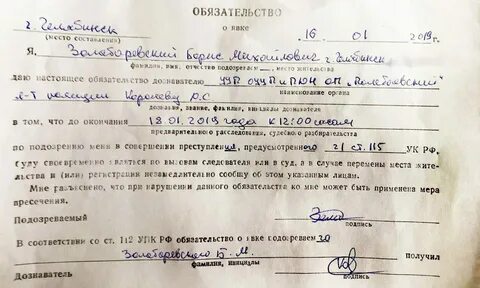 ОБЯЗАТЕЛЬСТВО
о явке
г. Челябинск 16 01 2019 г.
(место составления)
Я, Золотаревский Борис Михайлович г. Челябинск
фамилия, имя, отчество подозреваемого — место жительства
даю настоящее обязательство дознавателю УУП ОУУП и ПДН ОП
наименование органа
л-т полиции Королеву О.С
дознания, звание, фамилия, инициалы дознавателя
в том, что до окончания 18.01.2019 года к 12:00 часам
предварительного расследования, судебного разбирательства
по подозрению меня в совершении преступления, предусмотренного ст. 115 УК РФ,
буду своевременно являться по вызовам следователя или в суд, а в случае перемены места жи-
тельства и (или) регистрации незамедлительно сообщу об этом указанным лицам.
Мне разъяснено, что при нарушении данного обязательства ко мне может быть применена мера
пресечения.
Подозреваемый
подпись
В соответствии со ст. 112 УПК РФ обязательство о явке с подозреваемого
Золотаревского Б. М. получил
фамилия, инициалы
Дознаватель
подпись